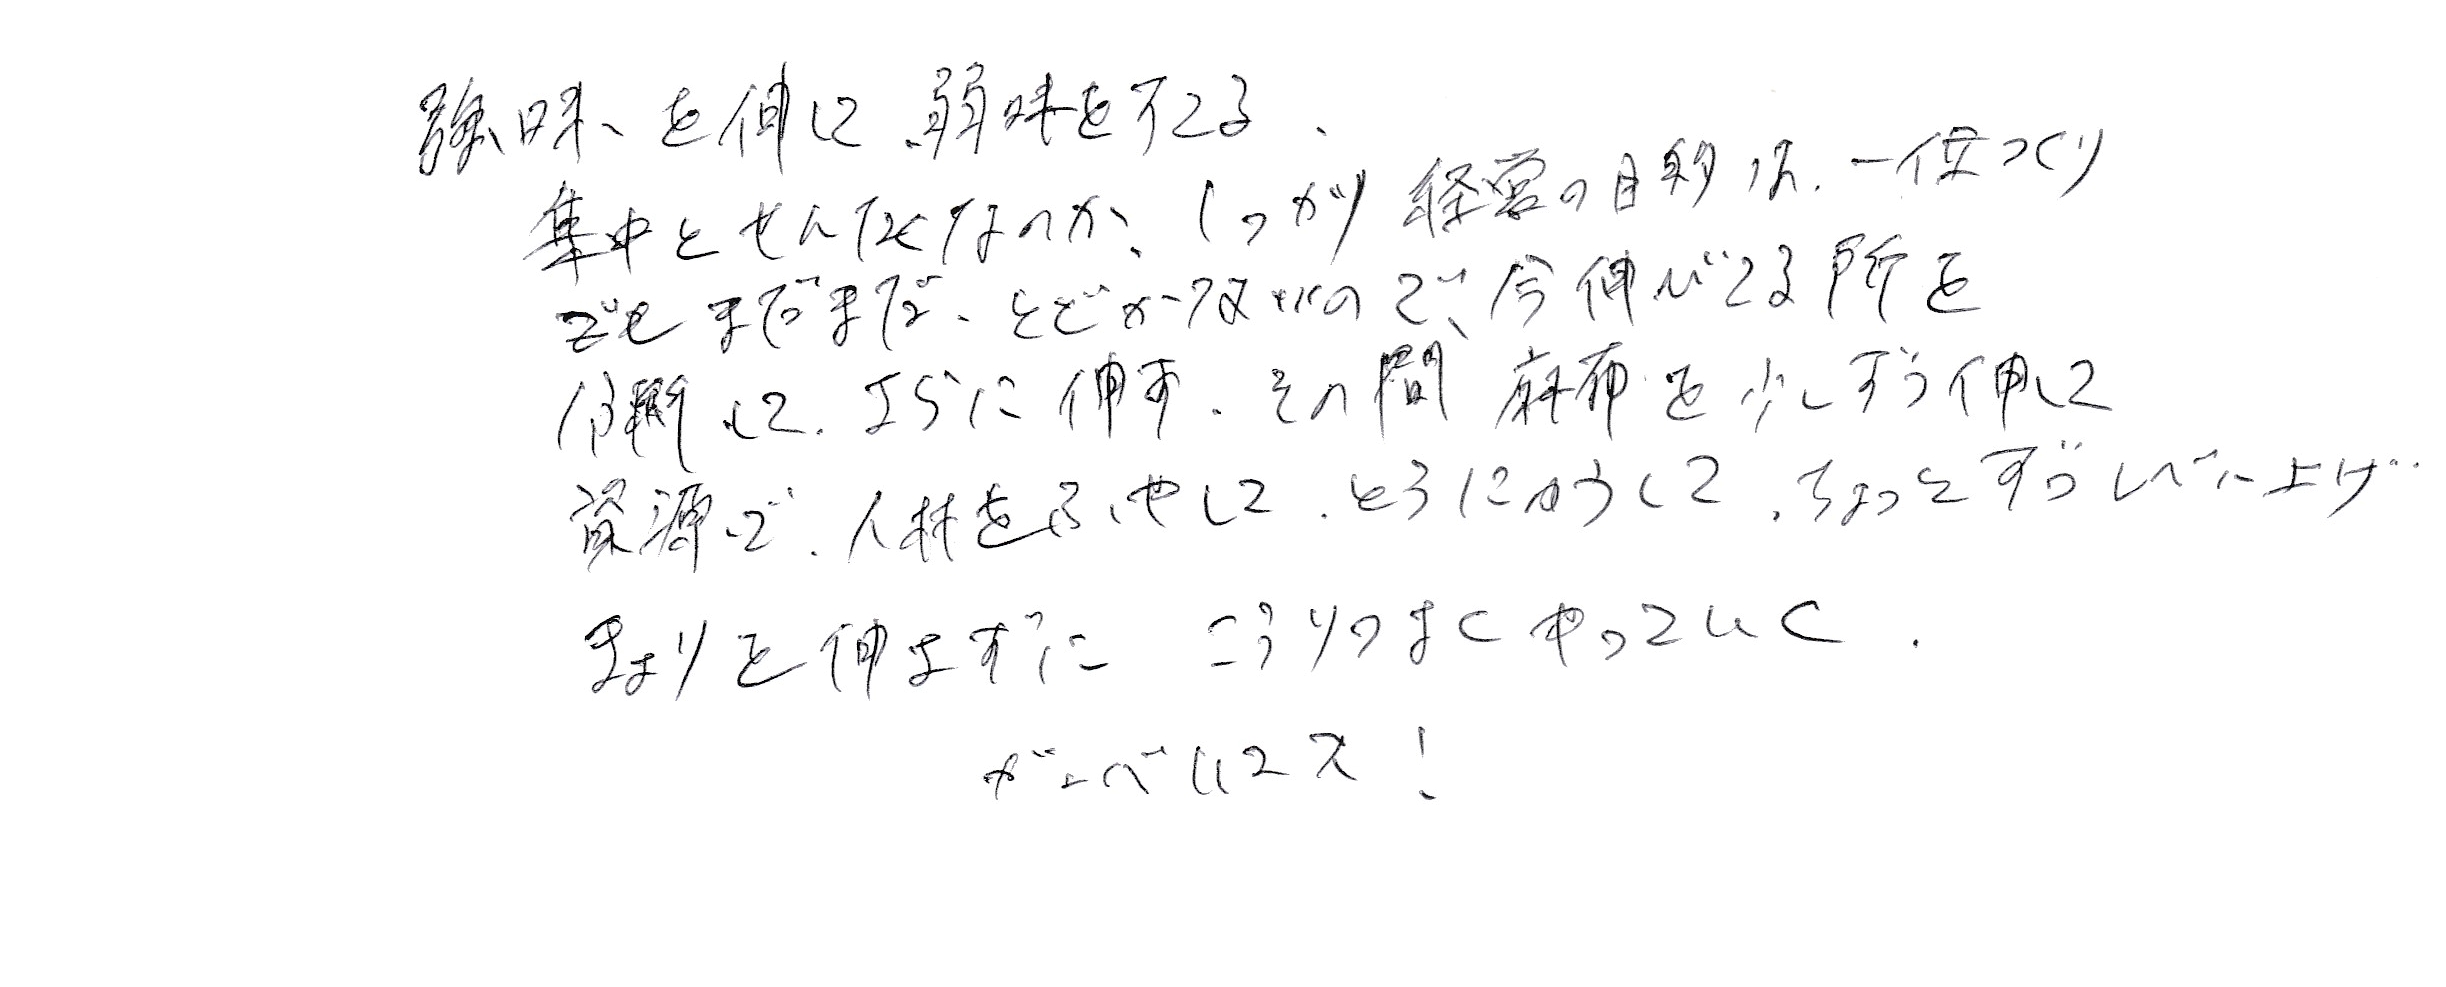 強味、を伸して、弱味をすてる、
集中とせんたくなのか、しっかり経営の目的は、一位づくり
でもまだまだ、とどかないので、今伸びてる所を
分断して、さらに伸す、その間 麻布を少しずつ伸して
資源で、人材をふやして、とうにゅうして、ちょっとずつレベル上げ
まわりを伸ますずに こうりつよくやっていく、
がんべにスス！